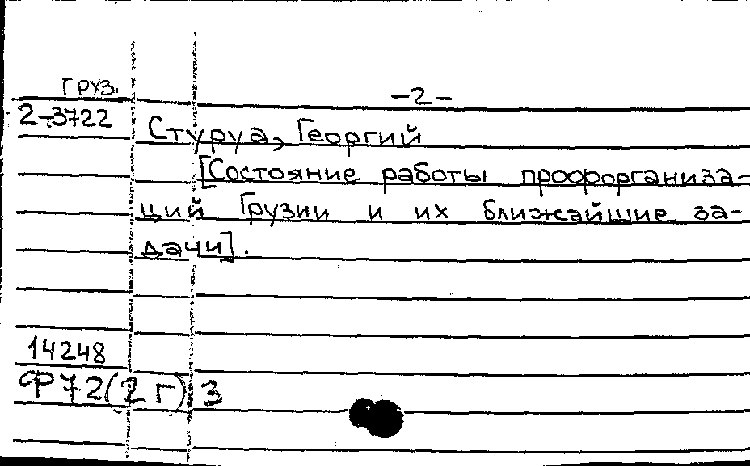 ГРУЗ.
-2-
2-3722
Стуруа, Георгий
[Состояние работы профорганиза-
ций Грузии и их ближайшие за-
дачи].
14248
Ф72(2Г)3